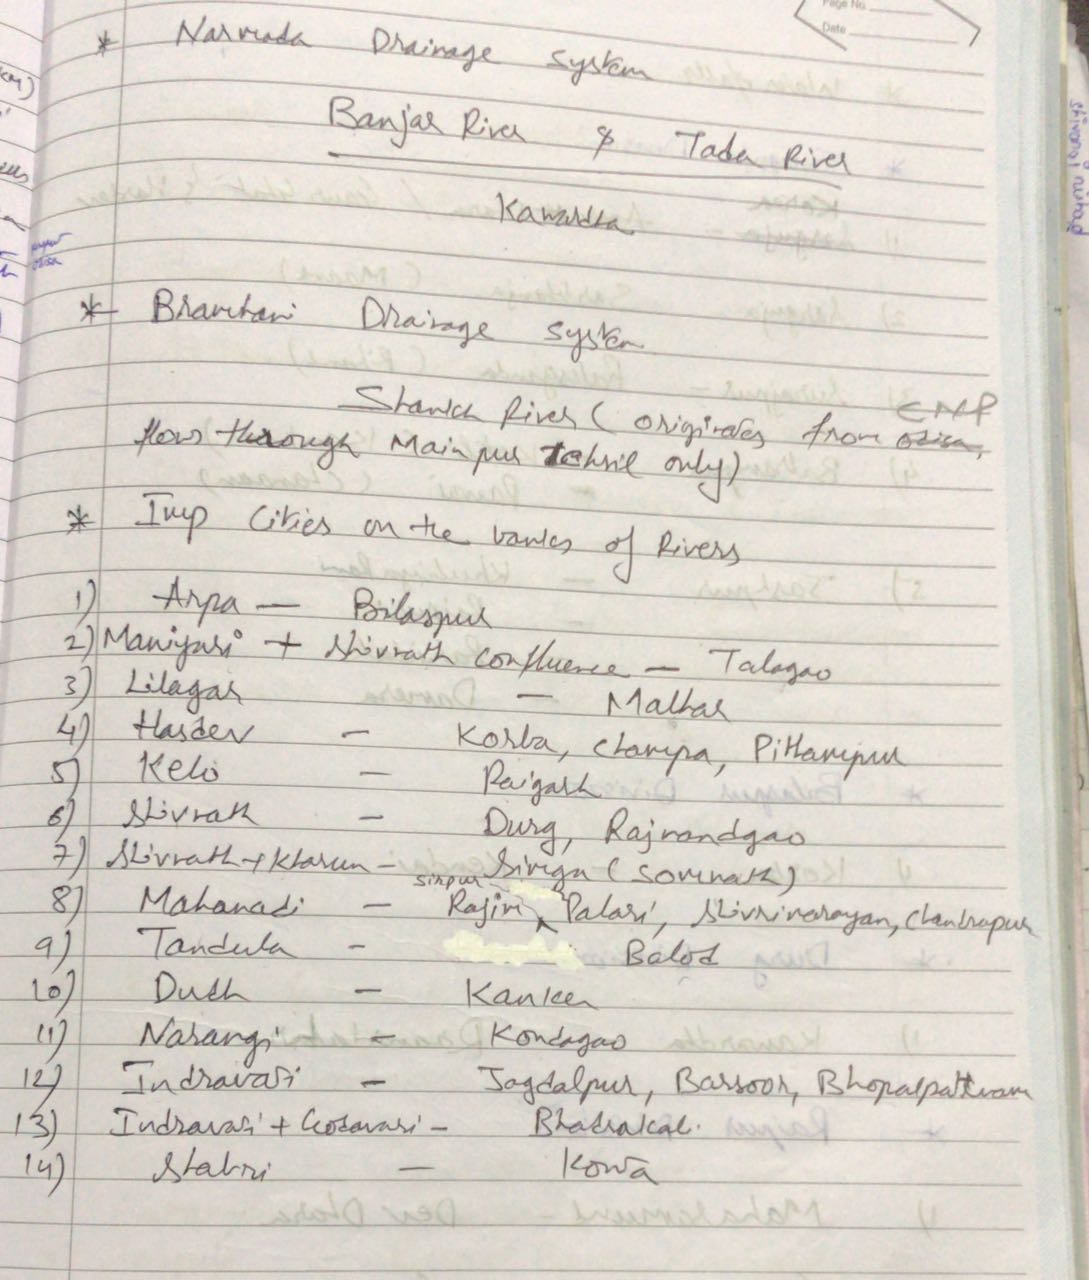 Page No.
Date
* Narmada Drainage system
Banjar River & Tada River
Kawardha
* Bramhani Drainage system
Shankh River (originates from CNP
flows through Mainpur Tehsil only)
* Imp cities on the banks of Rivers
1) Arpa — Bilaspur
2) Maniyari + Shivnath confluence — Talagao
3) Lilagar — Malhar
4) Hasdev — Korba, Champa, Pithampur
5) Kelo — Raigarh
6) Shivnath — Durg, Rajnandgao
7) Shivnath + Kharun - (Somnath)
sirpur
8) Mahanadi — Rajim, Palari, Shivrinarayan, Chandrapur
9) Tandula - Balod
10) Dudh — Kanker
11) Narangi — Kondagao
12) Indravati — Jagdalpur, Barsoor, Bhopalpattnam
13) Indravati + Godavari - Bhadrakali
14) Shabri — Konta